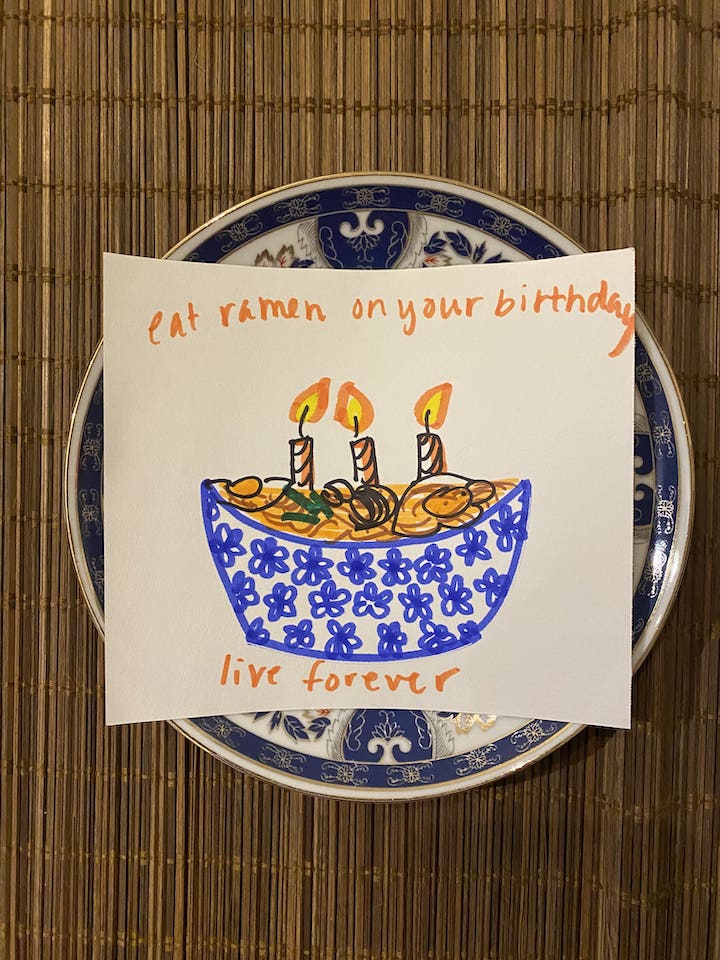 eat ramen on your birthday
live forever